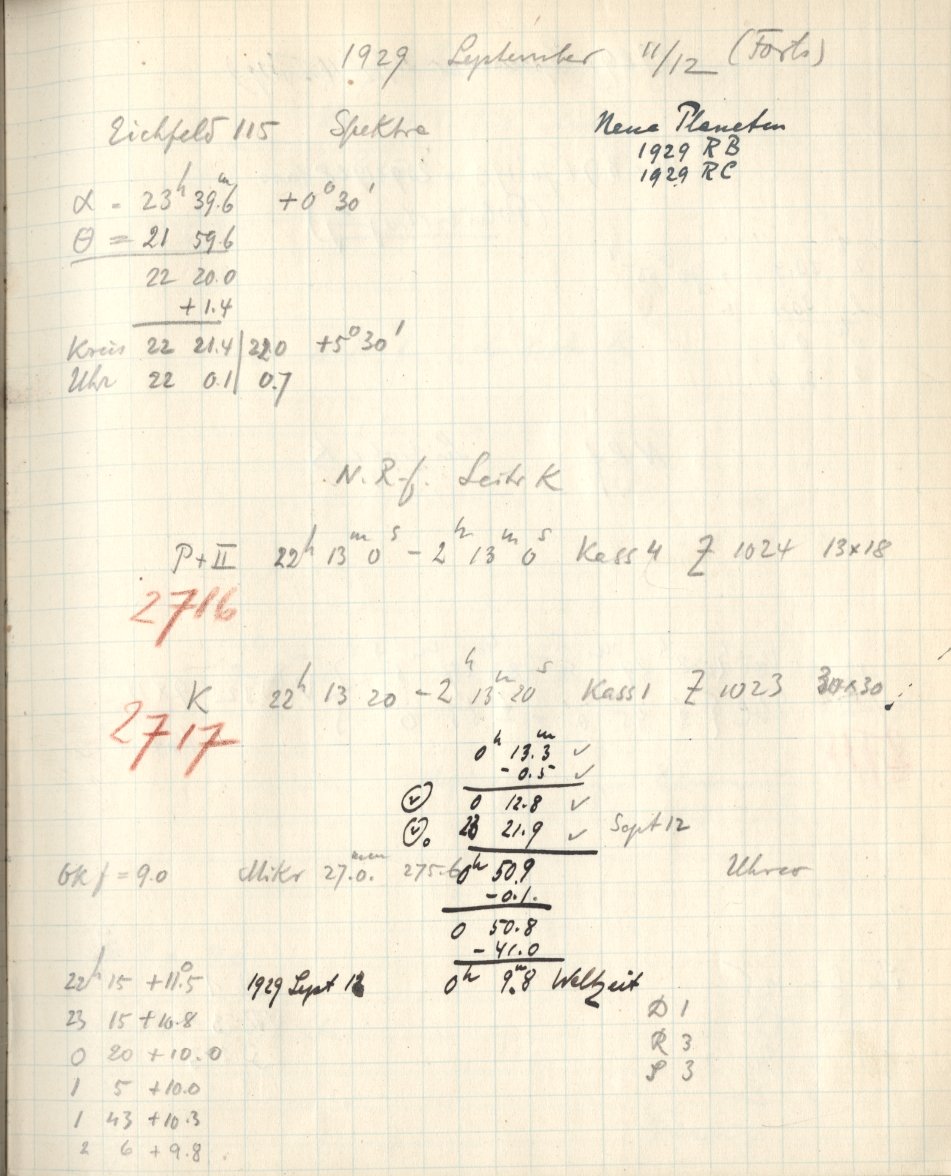 1929 September 11/12 (Forts)
Eichfeld 115 Spektra
Neue Planeten
1929 RB
1929 RC
α = 23h 39.6m +0° 30'
θ = 21 59.6
22 20.0
+1.4
Kreis 22 21.4 | 22.0 +5° 30'
Uhr 22 0.1 | 0.7
N. R-f. Seite K
P+II 22h 13m 0s - 2h 13m 0s Kass 4 Z 1024 13x18
2716
K 22h 13 20 - 2h 13m 20s Kass 1 Z 1023 30x30
2717
0h 13.3m ✓
- 0.5 ✓
0 12.8 ✓
23 21.9 ✓ Sept 12
Ok f = 9.0 Mikr 27.0mm 275.6
0h 50.9
- 0.1
0 50.8
- 41.0
22h 15 +11°.5 1929 Sept 12 0h 9m.8 Weltzeit
23 15 +10.8
0 20 +10.0
1 5 +10.0
1 43 +10.3
2 6 +9.8
D 1
R 3
S 3